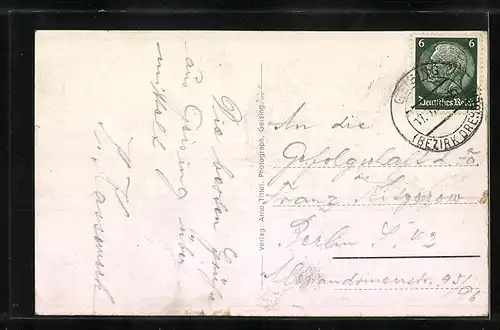 Die besten Grüße
aus Geising über
mittelt
Verlag: Arno Tittel, Photograph, Geising
6 6
Deutsches Reich
GEISING
(BEZIRK DRESDEN)
An die
Gefolgschaft d. Fa.
Franz
Berlin S. 42
Alexandrinenstr. 95/96